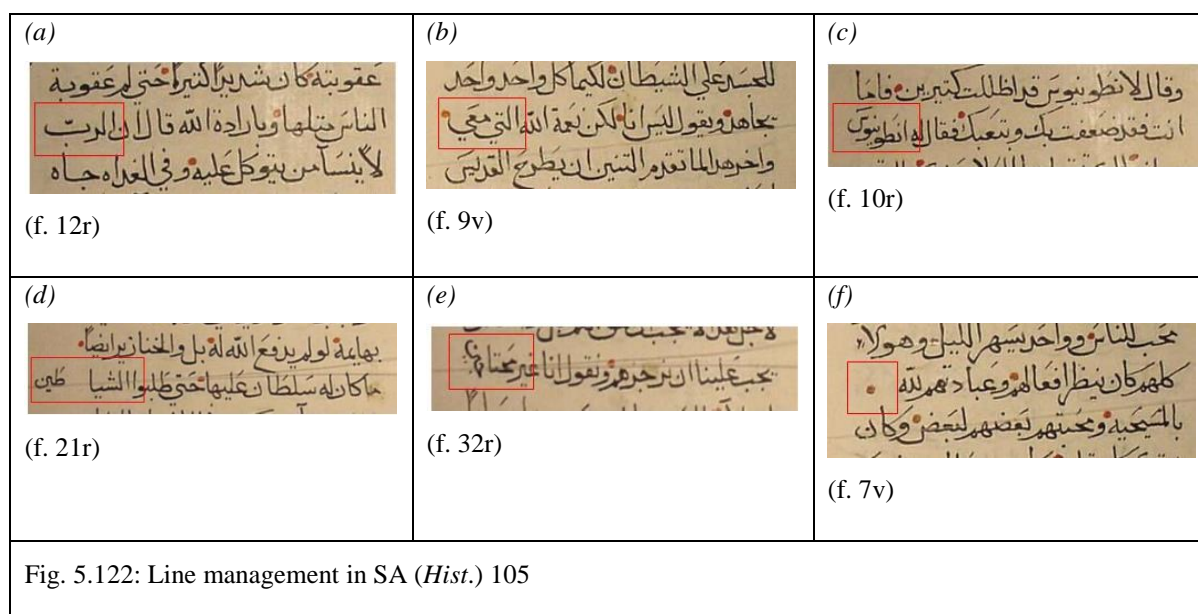 (a)
عقوبته كان شديدًا كثيرًا حتي لم عقوبة
الناس مثلها وبارادة الله قال ان الرب
لا ينسا من يتوكل عليه وفي الغداه جاه
(f. 12r)
(b)
للحسد علي الشيطان لكيما كل واحد واحد
يجاهد ويقول ليس انا لكن نعمة الله التي معي
واخر هذا لما تقدم التنين ان يطرح القديس
(f. 9v)
(c)
وقال لانطونيوس قد اظللت كتيرين فاما
انت فقد ضعفت بك وتتعبك فقال له انطونيوس
(f. 10r)
(d)
بهايمة لو لم يدفع الله له بل والخنازير ايضاً
ما كان له سلطان عليها حتي طلبوا الشيا طين
(f. 21r)
(e)
يجب علينا ان نزجرهم ونقول انا غير محتاجين
(f. 32r)
(f)
محب للناس وواحد يسهر الليل وهولا
كلهم كان ينظر افعالهم وعبادتهم لله
بالمسيحيه ومحبتهم بعضهم لبعض وكان
(f. 7v)
Fig. 5.122: Line management in SA (Hist.) 105